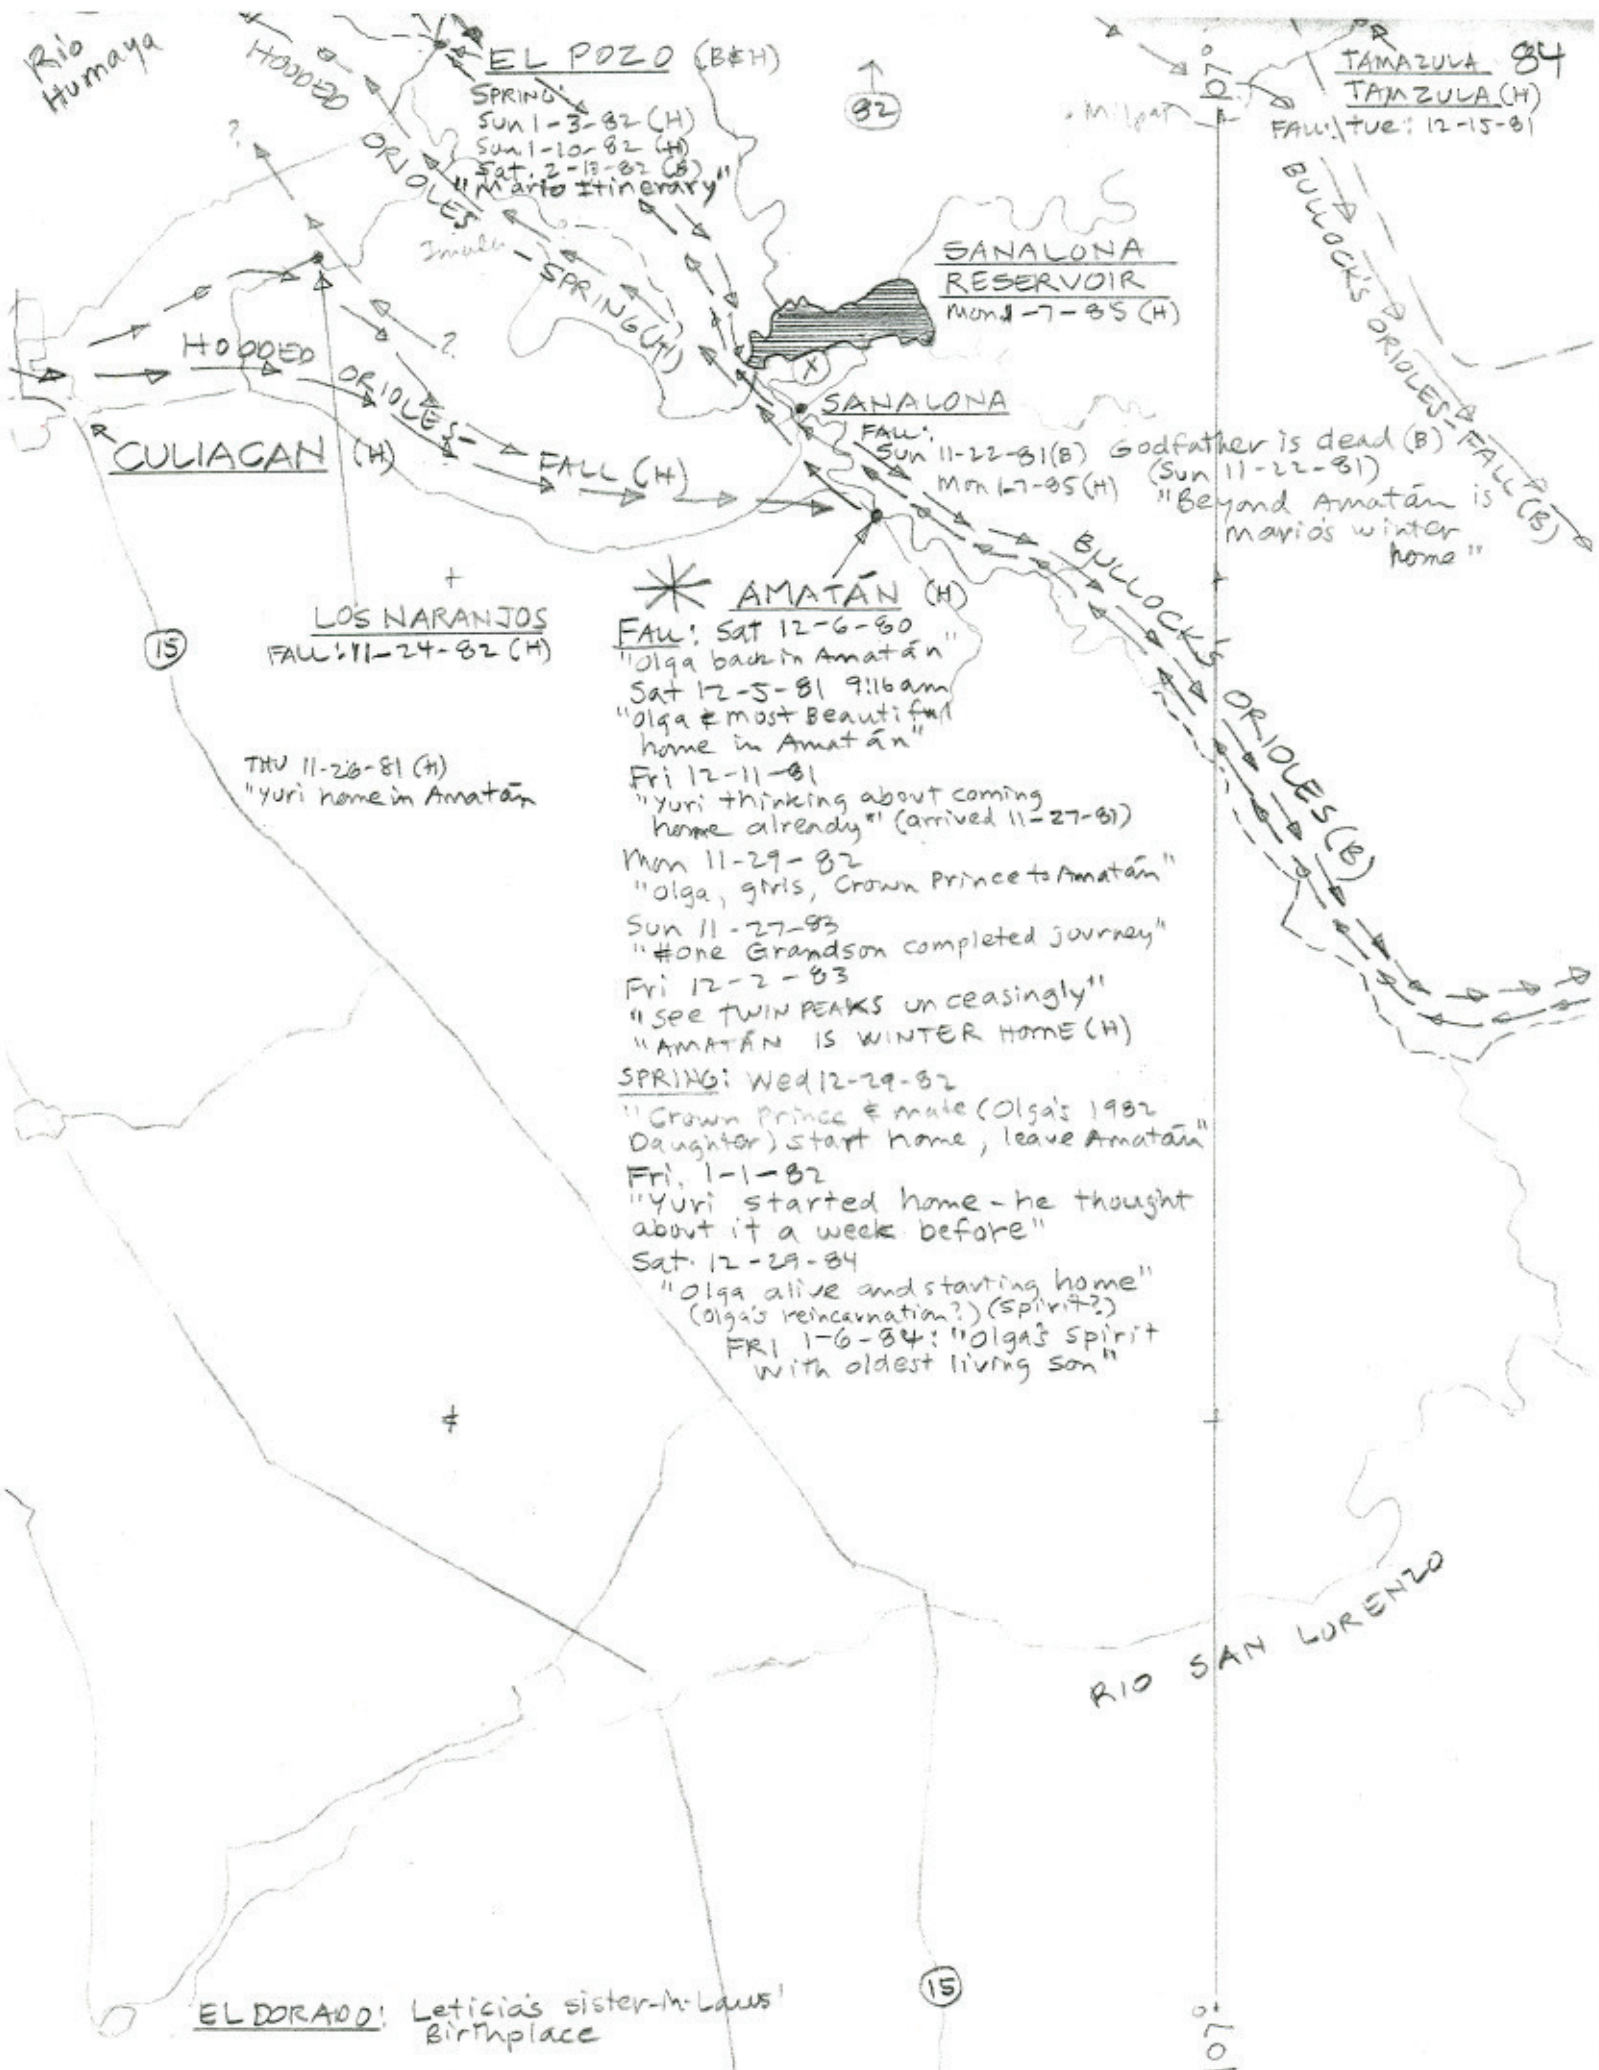 Río
Humaya
HOODED ORIOLES - SPRING (H)
EL POZO (B&H)
SPRING:
Sun 1-3-82 (H)
Sun 1-10-82 (H)
Sat. 2-13-82 (B)
"Mario Itinerary"
82
Milpas
107°
TAMAZULA 84
TAMZULA (H)
FALL: Tue: 12-15-81
BULLOCK'S ORIOLES - FALL (B)
?
Imala
SANALONA
RESERVOIR
Mon 1-7-85 (H)
X
HOODED ORIOLES - FALL (H)
?
CULIACAN (H)
SANALONA
FALL:
Sun 11-22-81 (B) Godfather is dead (B)
(Sun 11-22-81)
Mon 1-7-85 (H)
"Beyond Amatán is
Mario's winter
home"
BULLOCK'S ORIOLES (B)
LOS NARANJOS
FALL: 11-24-82 (H)
15
THU 11-26-81 (H)
"Yuri home in Amatán
AMATÁN (H)
FALL: Sat 12-6-80
"Olga back in Amatán"
Sat 12-5-81 9:16am
"Olga & most Beautiful
home in Amatán"
Fri 12-11-81
"Yuri thinking about coming
home already" (arrived 11-27-81)
Mon 11-29-82
"Olga, girls, Crown Prince to Amatán"
Sun 11-27-83
"#one Grandson completed journey"
Fri 12-2-83
"see TWIN PEAKS unceasingly"
"AMATÁN IS WINTER HOME (H)
SPRING: Wed 12-29-82
"Crown Prince & mate (Olga's 1982
Daughter) start home, leave Amatán"
Fri. 1-1-82
"Yuri started home - he thought
about it a week before"
Sat. 12-29-84
"Olga alive and starting home"
(Olga's reincarnation?) (Spirit?)
FRI 1-6-84: "Olga's spirit
with oldest living son"
RIO SAN LORENZO
15
EL DORADO: Leticia's sister-in-Laws'
Birthplace
107°